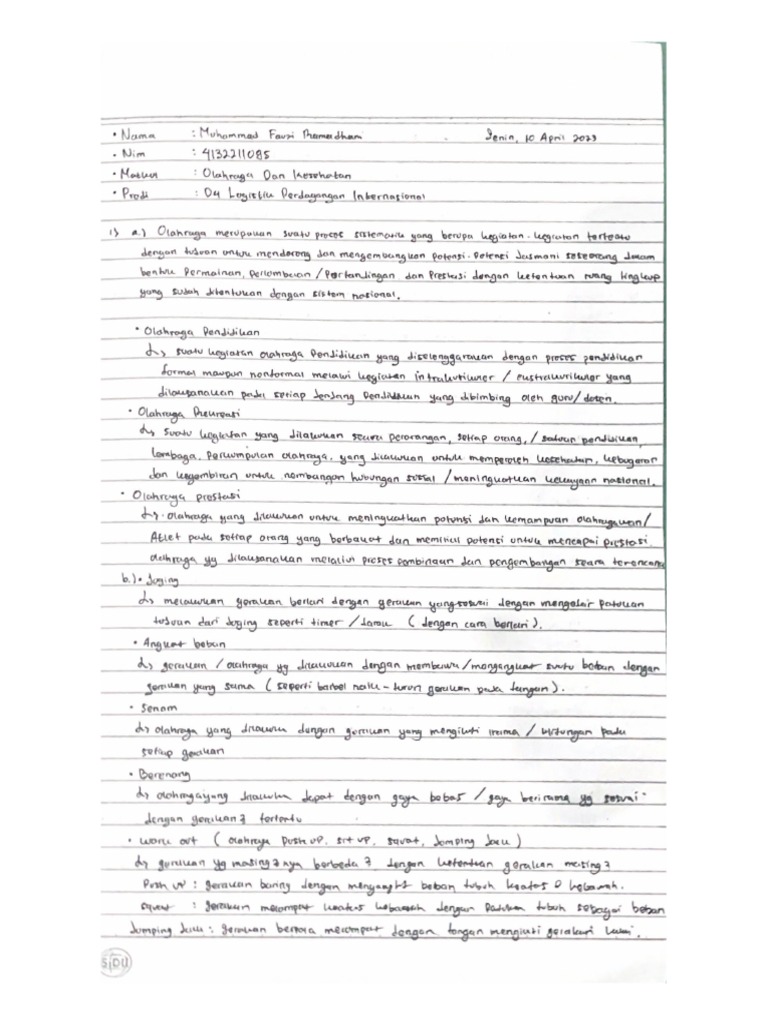 • Nama : Muhammad Fauzi Rhamadham Senin, 10 April 2023
• Nim : 4132211085
• Matkul : Olahraga Dan Kesehatan
• Prodi : D4 Logistik Perdagangan Internasional
1) a.) Olahraga merupakan suatu proses sistematik yang berupa kegiatan-kegiatan tertentu
dengan tujuan untuk mendorong dan mengembangkan potensi-potensi Jasmani seseorang dalam
bentuk Permainan, Perlombaan / Pertandingan dan Prestasi dengan ketentuan ruang lingkup
yang sudah ditentukan dengan sistem nasional.
• Olahraga Pendidikan
↳ suatu kegiatan olahraga Pendidikan yang diselenggarakan dengan proses pendidikan
formal maupun nonformal melalui kegiatan intrakurikuler / ekstrakurikuler yang
dilaksanakan pada setiap Jenjang Pendidikan yang dibimbing oleh guru/dosen.
• Olahraga Rekreasi
↳ Suatu kegiatan yang dilakukan secara perorangan, setiap orang, / satuan pendidikan,
Lembaga, Perkumpulan olahraga, yang dilakukan untuk memperoleh kesehatan, kebugaran
dan kegembiran untuk membangun hubungan sosial / meningkatkan kekayaan nasional.
• Olahraga prestasi
↳ olahraga yang dilakukan untuk meningkatkan potensi dan kemampuan olahragawan/
Atlet pada setiap orang yang berbakat dan memiliki potensi untuk mencapai prestasi.
olahraga yg dilaksanakan melalui proses pembinaan dan pengembangan secara terencana
b.) • Joging
↳ melakukan gerakan berlari dengan gerakan yang sesuai dengan mengejar patokan
tujuan dari Joging seperti timer / Jarak ( dengan cara berlari ).
• Angkat beban
↳ gerakan / olahraga yg dilakukan dengan membawa/mengangkat suatu beban dengan
gerakan yang sama ( seperti barbel naik-turun gerakan pada tangan ).
• Senam
↳ olahraga yang dilakukan dengan gerakan yang mengikuti irama / hitungan pada
setiap gerakan
• Berenang
↳ olahraga yang dilakukan dapat dengan gaya bebas / gaya berirama yg sesuai
dengan gerakan2 tertentu
• work out ( olahraga push up, sit up, squat, Jumping Jack )
↳ gerakan yg masing2 nya berbeda2 dengan ketentuan gerakan masing2
Push up : gerakan baring dengan mengangkat beban tubuh keatas kebawah.
squat : gerakan melompat keatas kebawah dengan Patokan tubuh sebagai beban
Jumping Jack : gerakan melompat dengan tangan mengikuti gerakan kaki.
SiDU